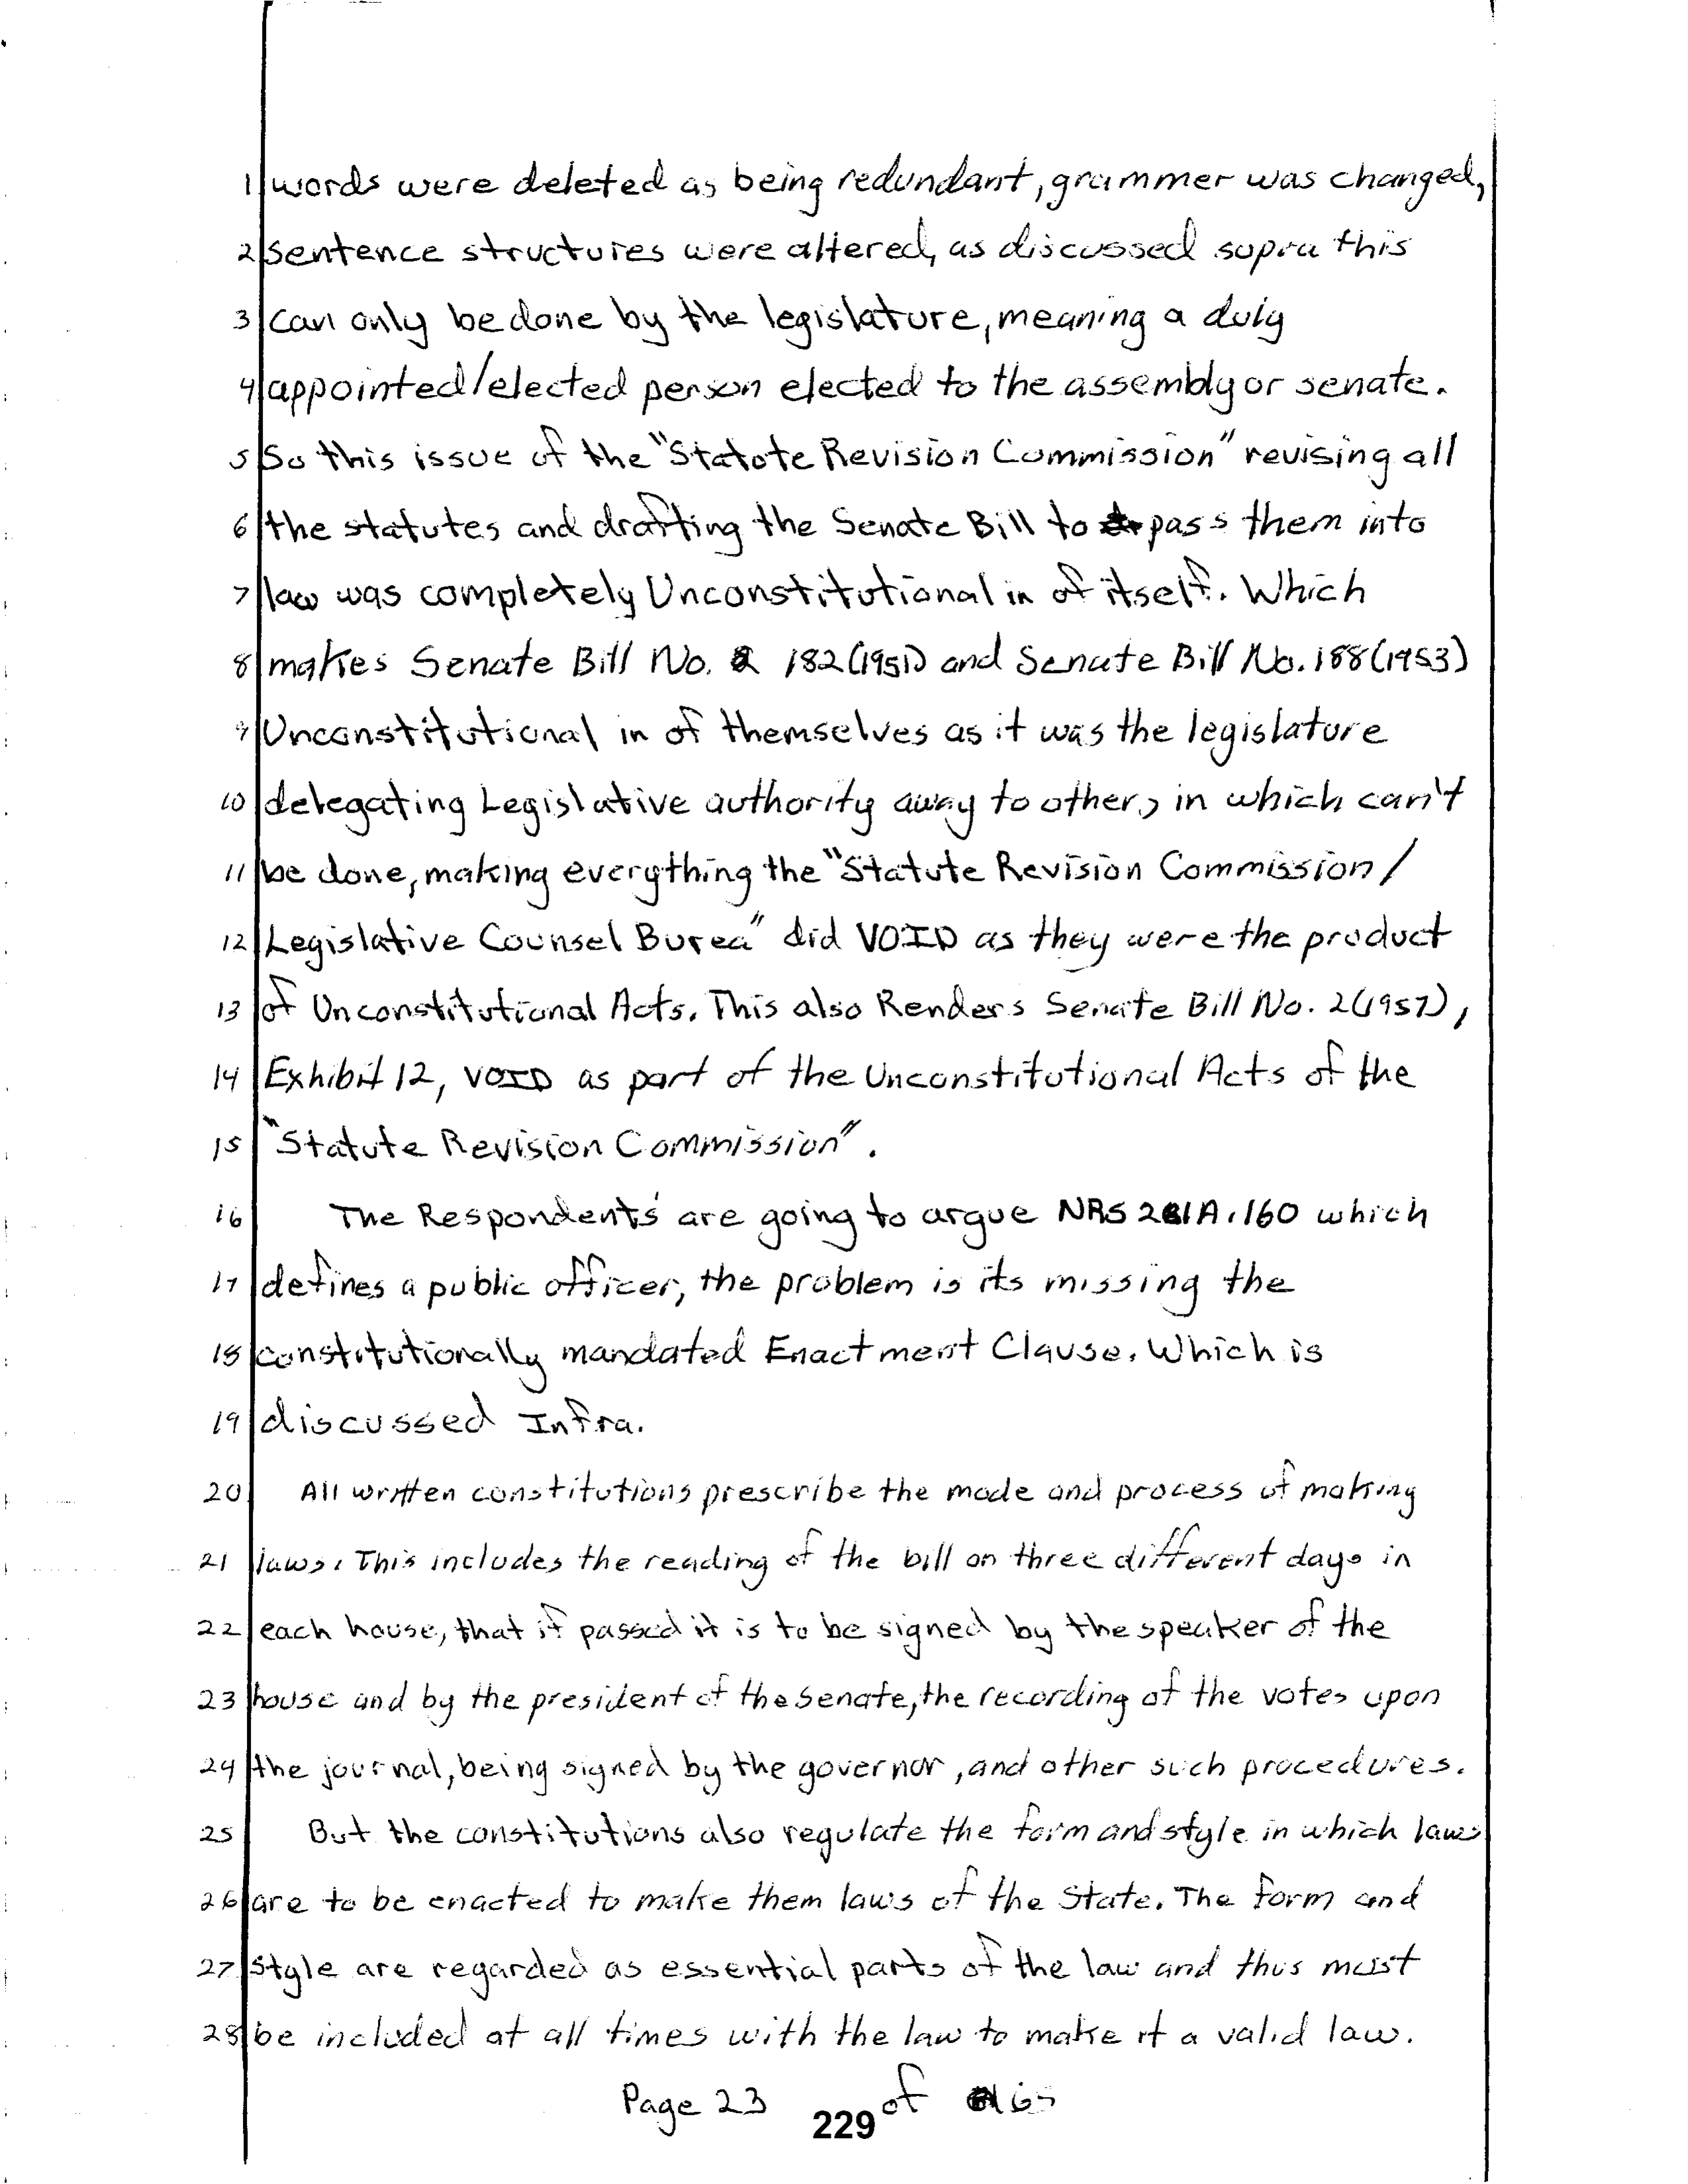 1 words were deleted as being redundant, grammer was changed,
2 sentence structures were altered, as discussed supra this
3 can only be done by the legislature, meaning a duly
4 appointed/elected person elected to the assembly or senate.
5 So this issue of the "Statute Revision Commission" revising all
6 the statutes and drafting the Senate Bill to pass them into
7 law was completely Unconstitutional in of itself. Which
8 makes Senate Bill No. 182 (1951) and Senate Bill No. 188 (1953)
9 Unconstitutional in of themselves as it was the legislature
10 delegating Legislative authority away to others, in which can't
11 be done, making everything the "Statute Revision Commission/
12 Legislative Counsel Burea" did VOID as they were the product
13 of Unconstitutional Acts. This also Renders Senate Bill No. 2 (1957),
14 Exhibit 12, VOID as part of the Unconstitutional Acts of the
15 "Statute Revision Commission".
16 The Respondents' are going to argue NRS 281A.160 which
17 defines a public officer, the problem is its missing the
18 constitutionally mandated Enactment Clause. Which is
19 discussed Infra.
20 All written constitutions prescribe the mode and process of making
21 laws. This includes the reading of the bill on three different days in
22 each house, that if passed it is to be signed by the speaker of the
23 house and by the president of the Senate, the recording of the votes upon
24 the journal, being signed by the governor, and other such procedures.
25 But the constitutions also regulate the form and style in which laws
26 are to be enacted to make them laws of the State. The form and
27 style are regarded as essential parts of the law and thus must
28 be included at all times with the law to make it a valid law.
Page 23 of
229